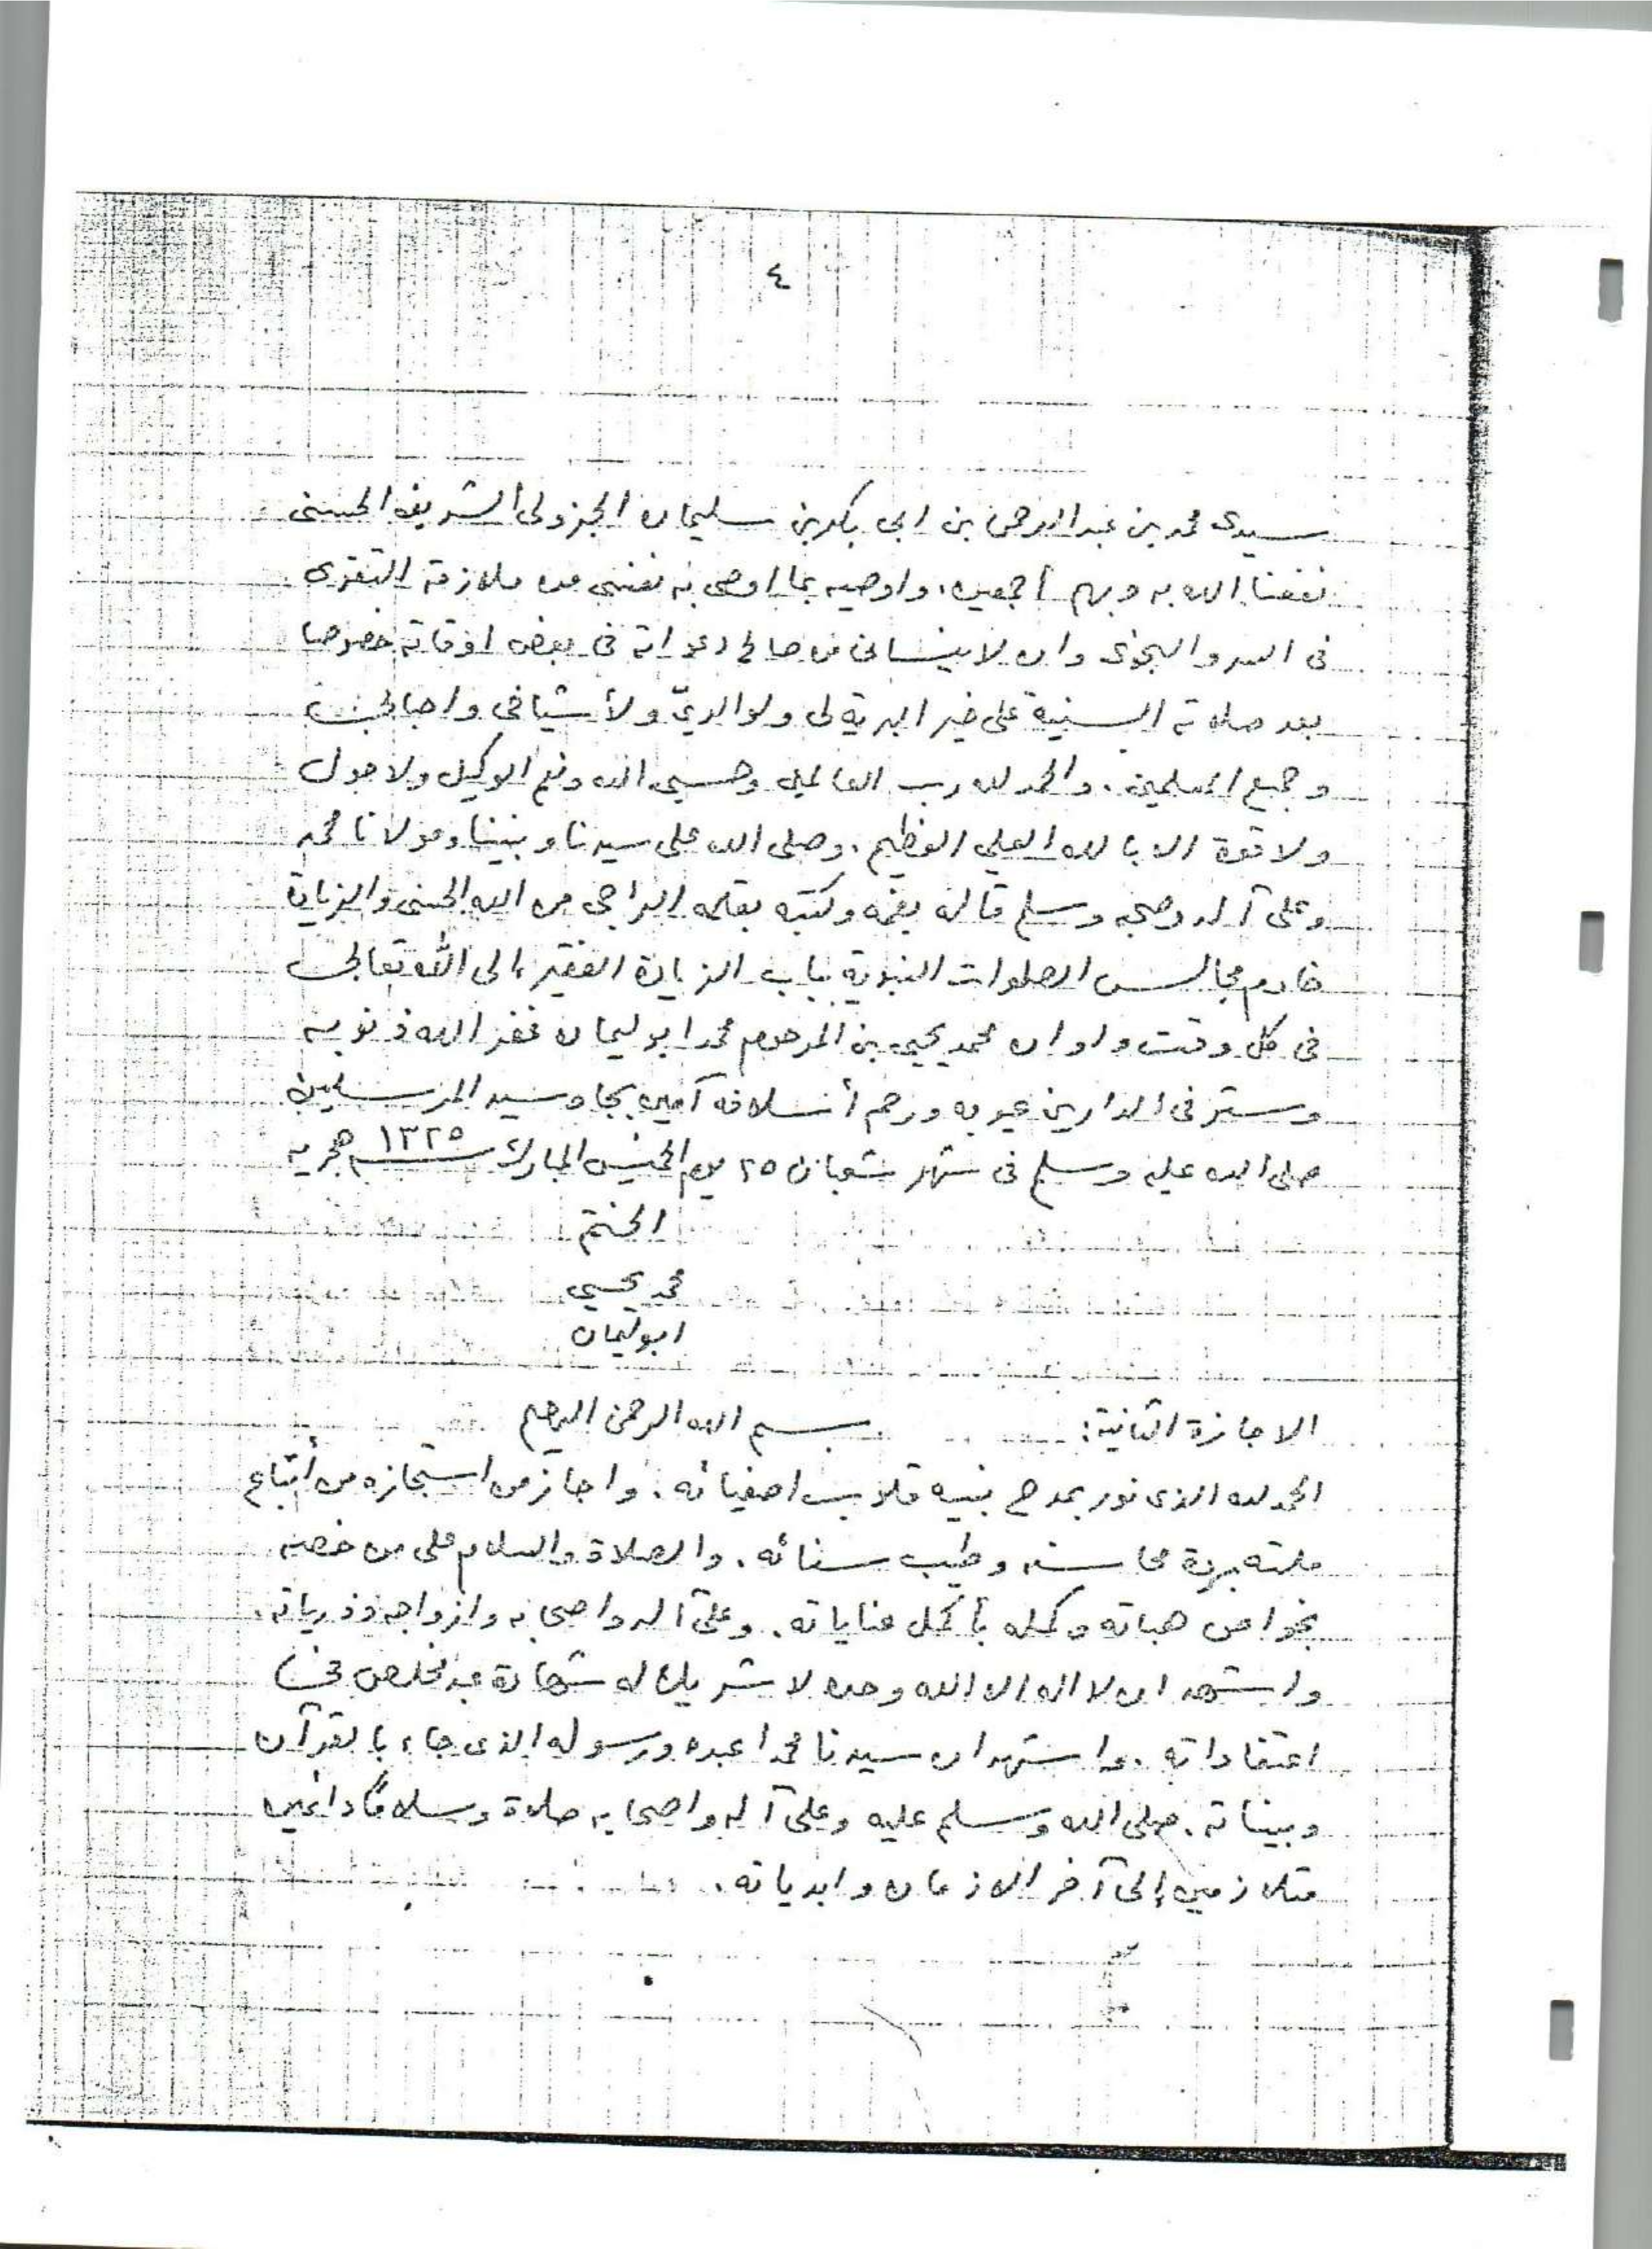 ٤
سيدى محمد بن عبد الرحمن بن ابى بكر بن سليمان الجزولى الشريف الحسنى
نفعنا الله به وبهم أجمعين. واوصيه بما اوصى به نفسى من ملازمة التقوى
فى السر والنجوى وان لا ينسانى من صالح دعواته فى بعض اوقاته خصوصا
بعد صلاته السنية على خير البرية لى ولوالديّ ولأشياخى واحبابى
وجميع المسلمين. والحمد لله رب العالمين وحسبى الله ونعم الوكيل ولا حول
ولا قوة الا بالله العلي العظيم. وصلى الله على سيدنا ونبينا ومولانا محمد
وعلى آله وصحبه وسلم قاله بفمه وكتبه بقلمه الراجى من الله الحسنى والزيادة
خادم مجالس الصلوات النبوية بباب الزيادة الفقير إلى الله تعالى
فى كل وقت واوان محمد يحيى بن المرحوم محمد ابو ليمان غفر الله ذنوبه
وستر فى الدارين عيوبه ورحم أسلافه آمين بجاه سيد المرسلين
صلى الله عليه وسلم فى شهر شعبان ٢٥ يوم الخميس المبارك سنة ١٣٢٥ هجريه
الختم
محمد يحيى
ابو ليمان
الاجازة الثانية: بسم الله الرحمن الرحيم
الحمد لله الذى نور بمدح نبيه قلوب اصفيائه. واجاز من استجازه من أتباع
ملته ببردة محاسنه وطيب سنائه. والصلاة والسلام على من خصه
بخواص هباته وكمله بأكمل عناياته. وعلى آله واصحابه وازواجه وذرياته.
واشهد ان لا اله الا الله وحده لا شريك له شهادة عبد مخلص فى
اعتقاداته. واشهد ان سيدنا محمدا عبده ورسوله الذى جاء بالقرآن
وبيناته. صلى الله وسلم عليه وعلى آله واصحابه صلاة وسلامًا دائمين
متلازمين إلى آخر الازمان وابدياته.